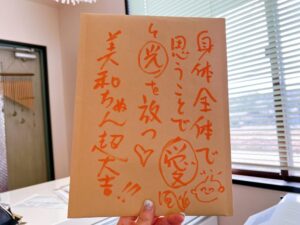 身体全体で
思うことで愛
光を放つ♡
美和ちゃん超大吉!!